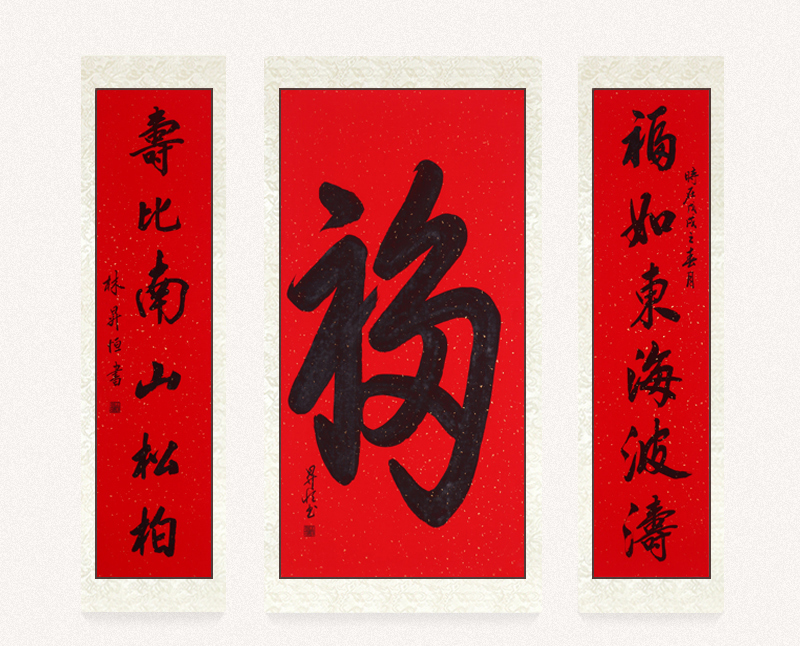 福如東海波濤
時在戊戌之春月
福
昇恒書
壽比南山松柏
林昇恒書